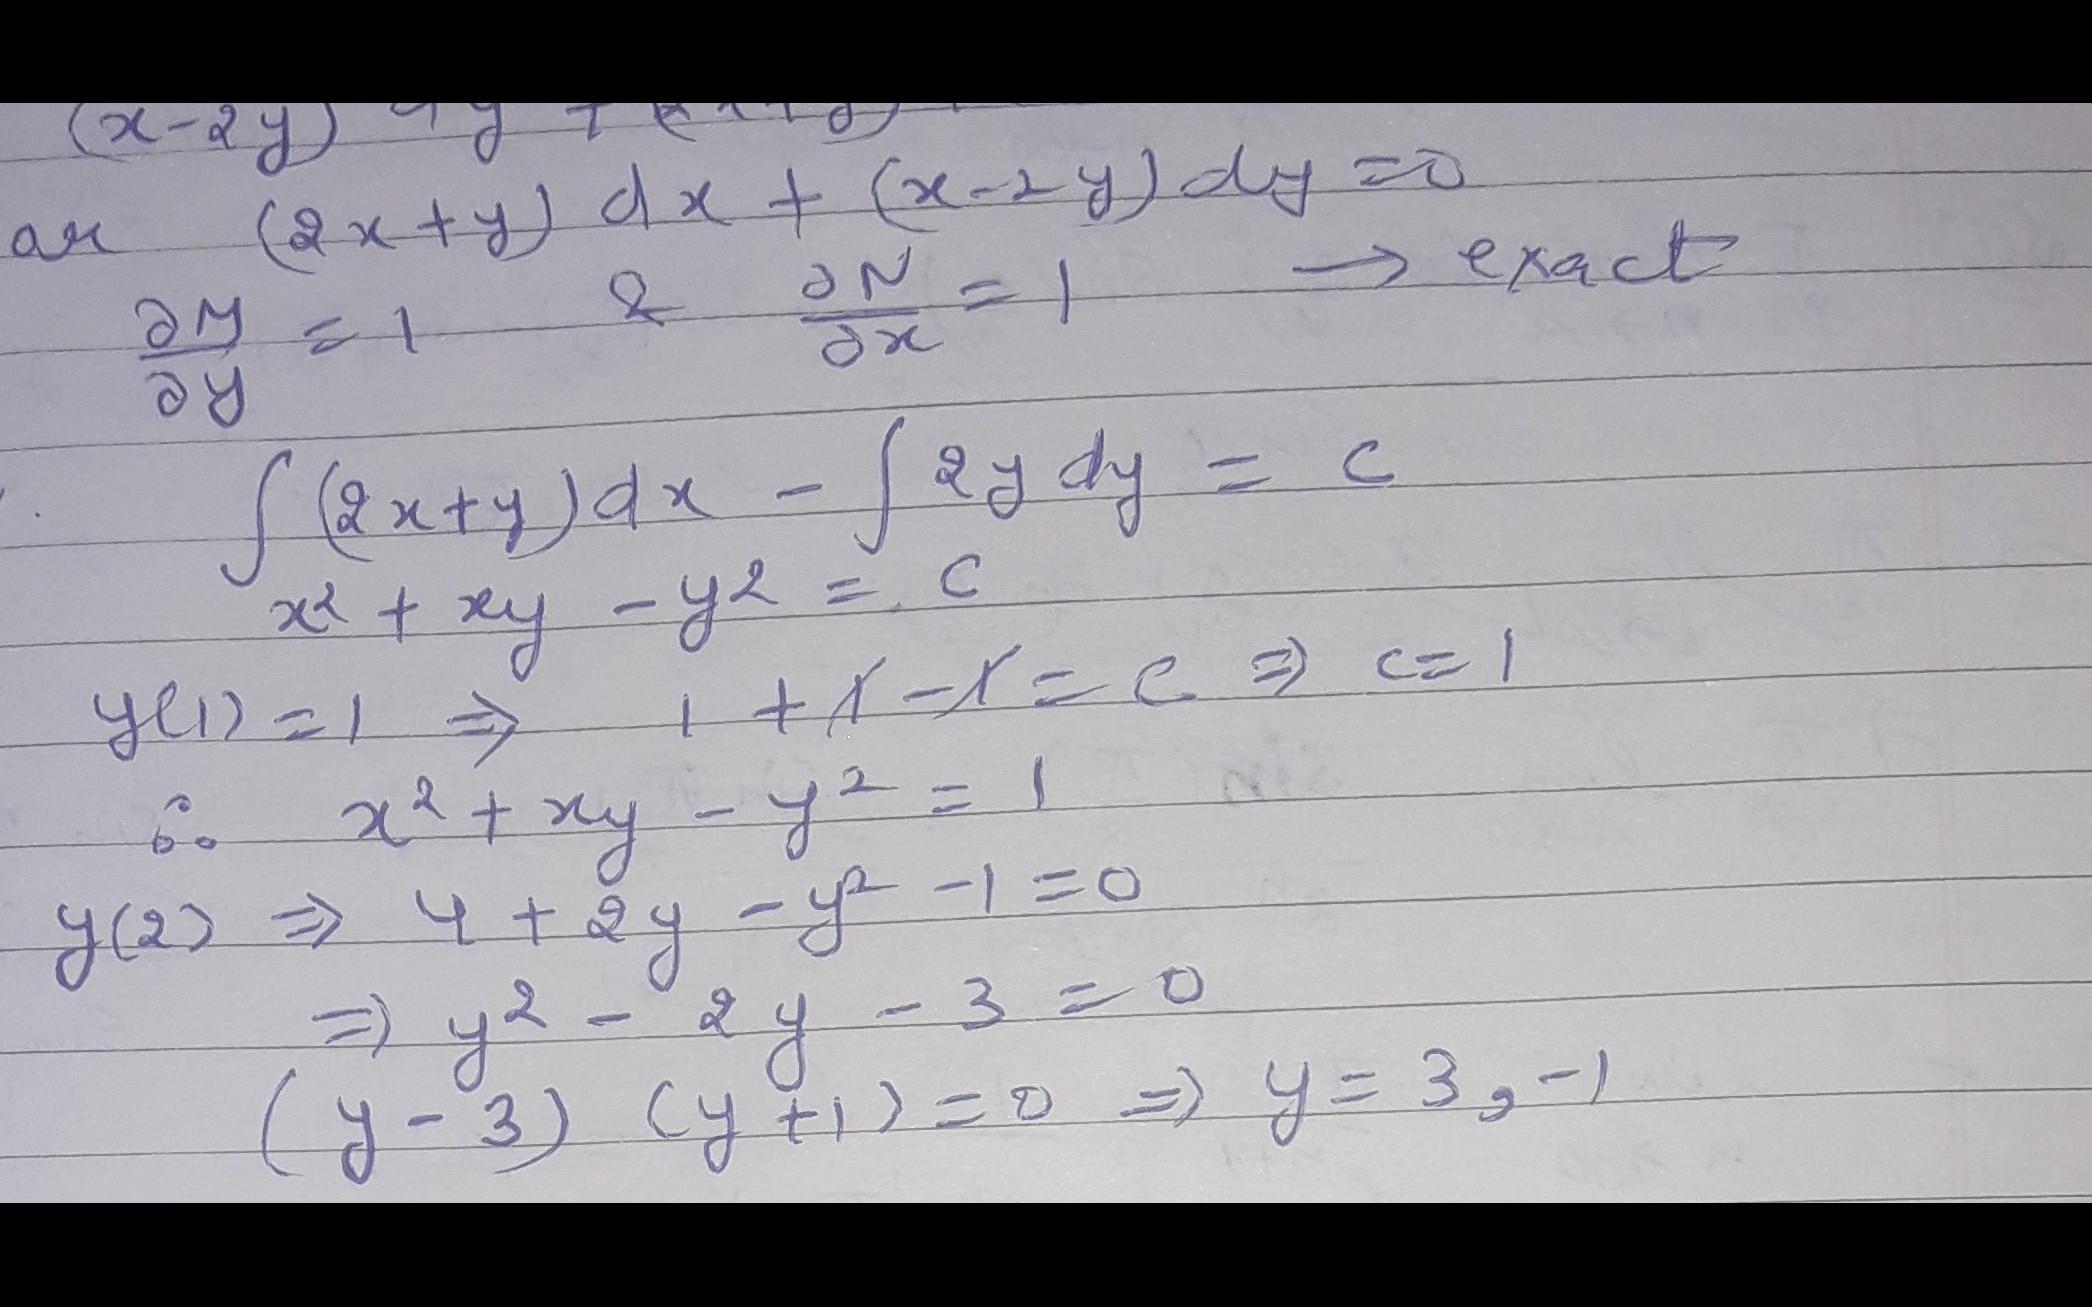 (x-2y) dy + (2x+y)
or (2x+y) dx + (x-2y) dy = 0
∂M/∂y = 1 & ∂N/∂x = 1 → exact
∫(2x+y)dx - ∫2y dy = c
x² + xy - y² = c
y(1) = 1 ⇒ 1 + 1 - 1 = c ⇒ c = 1
∴ x² + xy - y² = 1
y(2) ⇒ 4 + 2y - y² - 1 = 0
⇒ y² - 2y - 3 = 0
(y-3) (y+1) = 0 ⇒ y = 3, -1